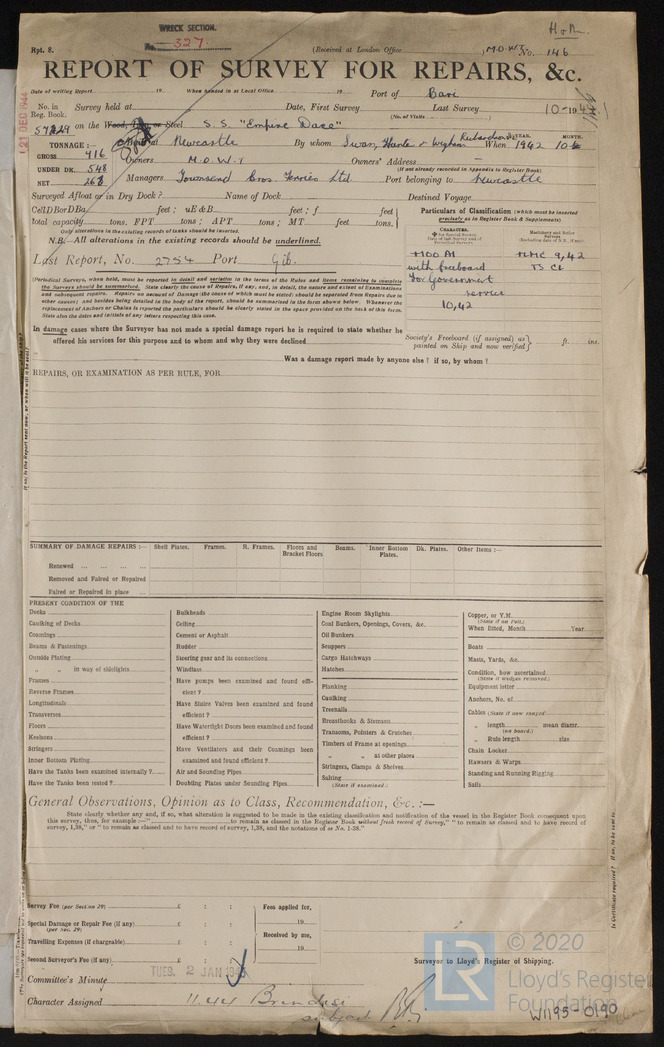 WRECK SECTION.
No. 327
H & M.
Rpt. 8.
(Received at London Office
M.O.W.T. No. 146
REPORT OF SURVEY FOR REPAIRS, &c.
Date of writing Report 19 When handed in at Local Office 19 Port of Bari
21 DEC 1944
No. in Reg. Book. Survey held at Date, First Survey Last Survey 10-1944
(No. of Visits
57229 on the Wood, Iron, or Steel S.S. "Empire Dace"
TONNAGE:—
GROSS 916
UNDER DK. 548
NET 268
Built at Newcastle By whom Swan, Hunter & Wigham Richardson When YEAR. 1942 MONTH. 10
Owners M.O.W.T Owners' Address —
(if not already recorded in Appendix to Register Book)
Managers Townsend Bros. Ferries Ltd Port belonging to Newcastle
Surveyed Afloat or in Dry Dock? Name of Dock Destined Voyage
CellDBorDBa feet; uE&B feet; f feet
total capacity tons. FPT tons; APT tons; MT feet tons.
Only alterations in the existing records of tanks should be inserted.
N.B. All alterations in the existing records should be underlined.
Last Report, No. 2754 Port Gib.
Particulars of Classification (which must be inserted precisely as in Register Book & Supplements)
CHARACTER.
✠ for Special Survey
Date of last Survey and of Periodical Surveys
Machinery and Boiler Surveys
(including date of N.B., if any)
M100 A1
with freeboard
for Government
service
10,42
MMC 9,42
TS CL
(Periodical Surveys, when held, must be reported in detail and seriatim in the terms of the Rules and items remaining to complete the Surveys should be summarised. State clearly the cause of Repairs, if any, and, in detail, the nature and extent of Examinations and subsequent repairs. Repairs on account of Damage (the cause of which must be stated) should be separated from Repairs due to other causes; and besides being detailed in the body of the report, should be summarised in the form above below. Whenever the replacement of Anchors or Chains is reported the particulars should be clearly stated in the space provided on the back of this form. State also the dates and initials of any letters respecting this case.
In damage cases where the Surveyor has not made a special damage report he is required to state whether he offered his services for this purpose and to whom and why they were declined
Society's Freeboard (if assigned) as painted on Ship and now verified ft. ins.
Was a damage report made by anyone else? if so, by whom?
REPAIRS, OR EXAMINATION AS PER RULE, FOR
SUMMARY OF DAMAGE REPAIRS:— Shell Plates. Frames. R. Frames. Floors and Bracket Floors Beams. Inner Bottom Plates. Dk. Plates. Other Items:—
Renewed
Removed and Faired or Repaired
Faired or Repaired in place
PRESENT CONDITION OF THE
Decks
Caulking of Decks
Coamings
Beams & Fastenings
Outside Plating
" " in way of sidelights
Frames
Reverse Frames
Longitudinals
Transverses
Floors
Keelsons
Stringers
Inner Bottom Plating
Have the Tanks been examined internally?
Have the Tanks been tested?
Bulkheads
Ceiling
Cement or Asphalt
Rudder
Steering gear and its connections
Windlass
Have pumps been examined and found efficient?
Have Sluice Valves been examined and found efficient?
Have Watertight Doors been examined and found efficient?
Have Ventilators and their Coamings been examined and found efficient?
Air and Sounding Pipes
Doubling Plates under Sounding Pipes
Engine Room Skylights
Coal Bunkers, Openings, Covers, &c.
Oil Bunkers
Scuppers
Cargo Hatchways
Hatches
Planking
Caulking
Treenails
Breasthooks & Stemson
Transoms, Pointers & Crutches
Timbers of Frame at openings
" " at other places
Stringers, Clamps & Shelves
Salting
(State if examined
Copper, or Y.M.
(State if on Felt.)
When fitted, Month Year
Boats
Masts, Yards, &c.
Condition, how ascertained
(State if wedges removed)
Equipment letter
Anchors, No. of
Cables (State if now ranged
" length mean diamr.
(on board.)
" Rule length size
Chain Locker
Hawsers & Warps
Standing and Running Rigging
Sails
General Observations, Opinion as to Class, Recommendation, &c.:—
State clearly whether any and, if so, what alteration is suggested to be made in the existing classification and notification of the vessel in the Register Book consequent upon this survey, thus, for example:—" to remain as classed in the Register Book without fresh record of Survey," "to remain as classed and to have record of survey, 1,38," or "to remain as classed and to have record of survey, 1,38, and the notations of ss No. 1-38."
Survey Fee (per Section 29) £ : :
Special Damage or Repair Fee (if any) (per Sec. 29) £ : :
Travelling Expenses (if chargeable) £ : :
Second Surveyor's Fee (if any) £ : :
Fees applied for,
19
Received by me,
19
Surveyor to Lloyd's Register of Shipping.
Committee's Minute TUES. 2 JAN 1945
Character Assigned 11.44 Brindisi
subject
Is Certificate required? If so, to be sent
LR
© 2020
Lloyd's Register
Foundation
W1195-0190